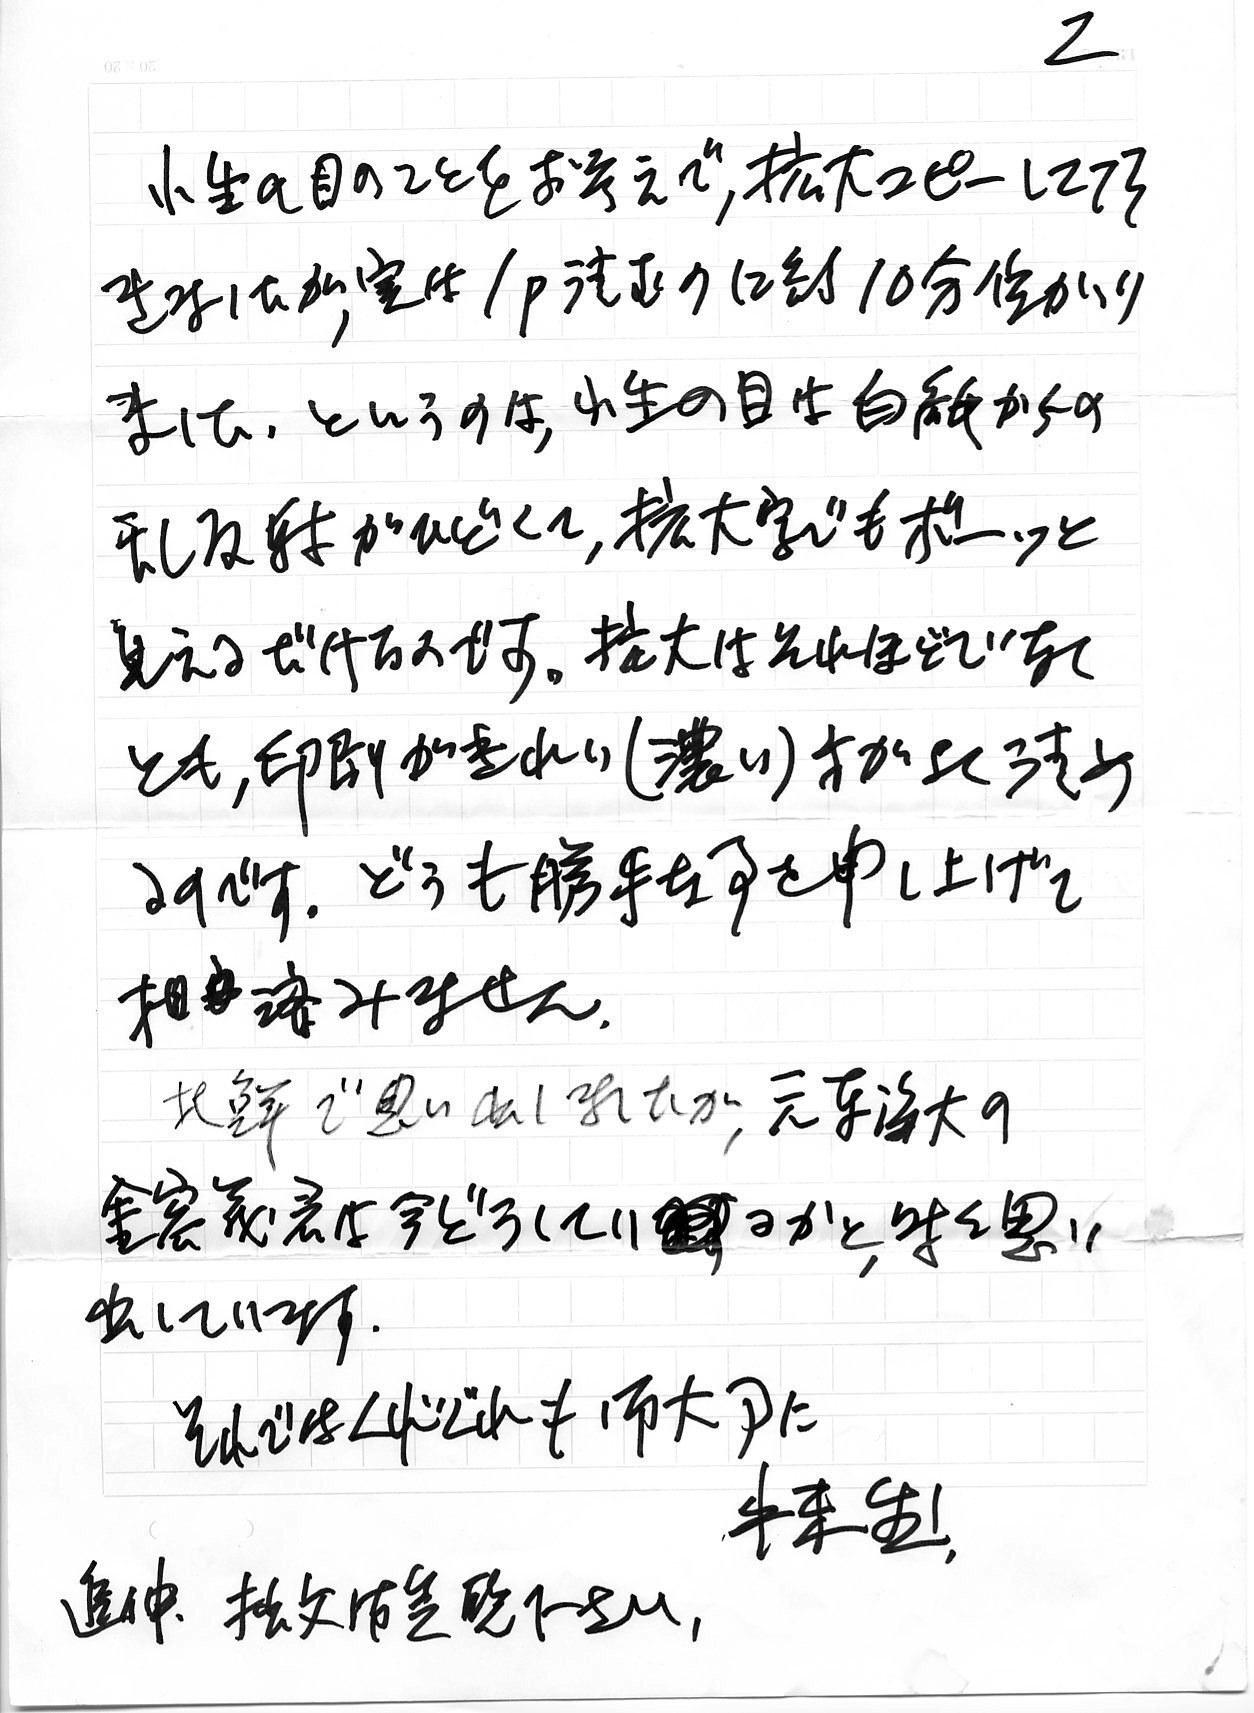 2
小生の目のことをお考えで,拡大コピーして下さ
いましたが,実は1p読むのに約10分位かかり
ました.というのは,小生の目は白紙からの
乱反射がひどくて,拡大字でもボーッと
見えるだけなのです。拡大はそれほどでなく
とも,印刷がきれい(濃い)方がよく読め
るのです.どうも勝手な事を申し上げて
相済みません.
北鮮で思い出しましたが,元東海大の
金宏茂君は今どうしているかと,時々思い
出しています.
それではくれぐれも御大事に
生!
追伸.拙文御笑覧下さい,